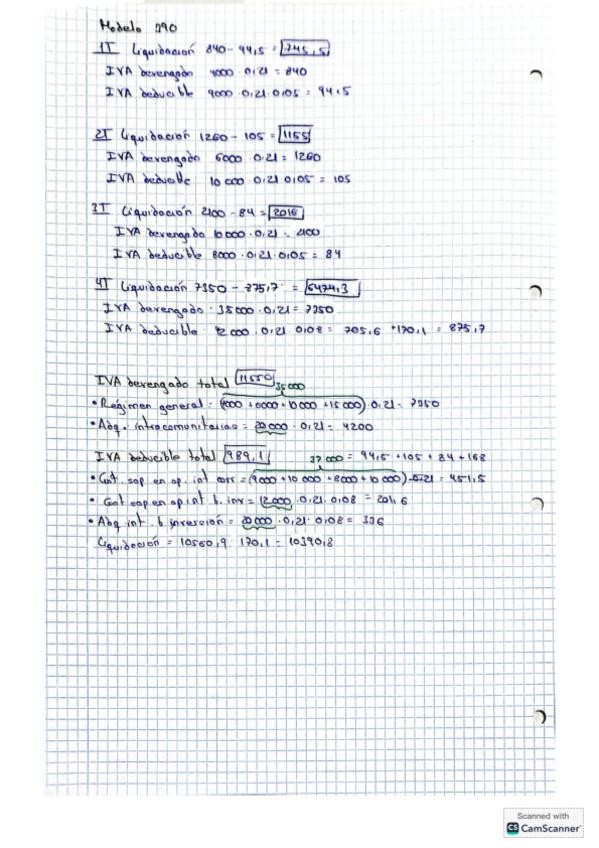 Modelo 390
1T Liquidación 840 - 94,5 = 745,5
IVA devengado 4000 · 0,21 = 840
IVA deducible 9000 · 0,21 · 0,05 = 94,5
2T Liquidación 1260 - 105 = 1155
IVA devengado 6000 · 0,21 = 1260
IVA deducible 10 000 · 0,21 · 0,05 = 105
3T Liquidación 2100 - 84 = 2016
IVA devengado 10 000 · 0,21 = 2100
IVA deducible 8000 · 0,21 · 0,05 = 84
4T Liquidación 7350 - 875,7 = 6474,3
IVA devengado 35 000 · 0,21 = 7350
IVA deducible 42 000 · 0,21 · 0,08 = 705,6 + 170,1 = 875,7
IVA devengado total 11550
35 000
• Régimen general = (4000 + 6000 + 10 000 + 15 000) · 0,21 = 7350
• Adq. intracomunitarias = 20 000 · 0,21 = 4200
IVA deducible total 989,1 37 000 = 94,5 + 105 + 84 + 168
• Cuot. sop en op. int corr = (9000 + 10 000 + 8000 + 10 000) · 0,21 = 451,5
• Cuot sop en op. int b. inv = 12 000 · 0,21 · 0,08 = 201,6
• Adq int. b inversión = 20 000 · 0,21 · 0,08 = 336
Liquidación = 10560,9 - 170,1 = 10390,8
Scanned with
CS CamScanner